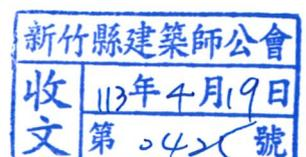 新竹縣建築師公會
收文
113年4月19日
第 0425 號